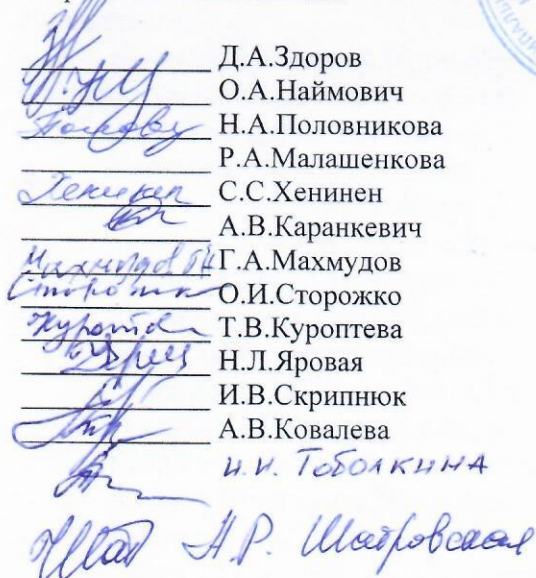 Д.А.Здоров
О.А.Наймович
Н.А.Половникова
Р.А.Малашенкова
Хенинен С.С.Хенинен
А.В.Каранкевич
Махмудов ГА Г.А.Махмудов
Сторожко О.И.Сторожко
Т.В.Куроптева
Н.Л.Яровая
И.В.Скрипнюк
А.В.Ковалева
И.И. ТОБОЛКИНА
Н.Р. Шатровская